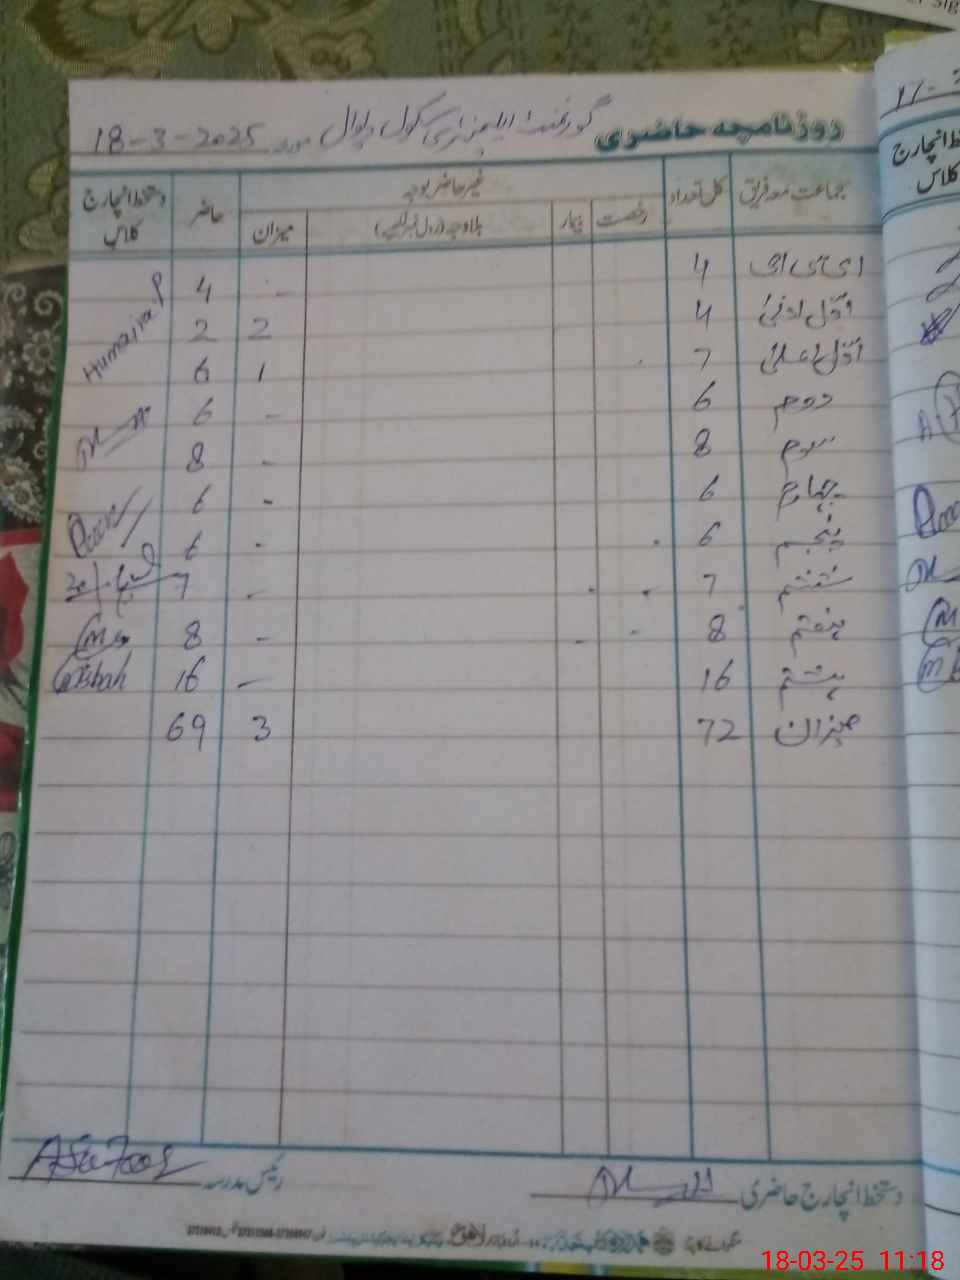 روزنامچہ حاضری گورنمنٹ ایلیمنٹری سکول مورخہ 18-3-2025
جماعت معہ فریق کل تعداد غیر حاضر بوجہ حاضر دستخط انچارج کلاس
رخصت بیمار بلاوجہ (رول نمبر لکھیے) میزان
ای سی ای 4 - 4
اوّل ادنیٰ 4 2 2 Humaira
اوّل اعلیٰ 7 1 6
دوم 6 - 6
سوم 8 - 8
چہارم 6 - 6
پنجم 6 - 6
ششم 7 - 7
ہفتم 8 - 8
ہشتم 16 - 16 Misbah
میزان 72 3 69
دستخط انچارج حاضری رئیس مدرسہ
18-03-25 11:18
انچارج
کلاس